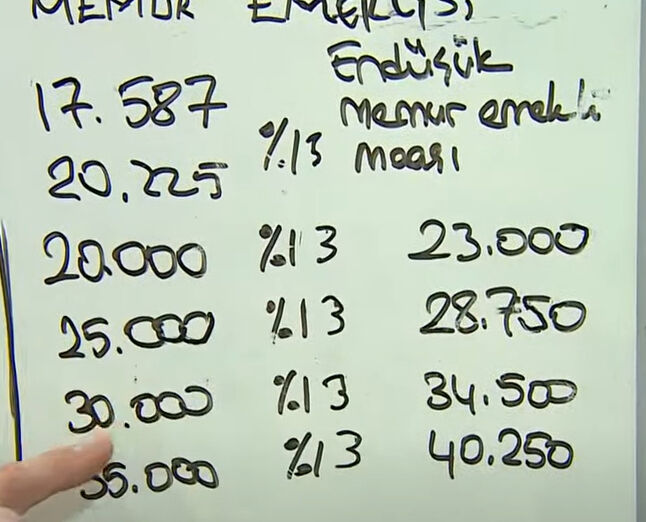 MEMUR EMEKLİSİ
Endüşük
17.587 memur emekli
20.225 %13 maaşı
20.000 %13 23.000
25.000 %13 28.750
30.000 %13 34.500
35.000 %13 40.250